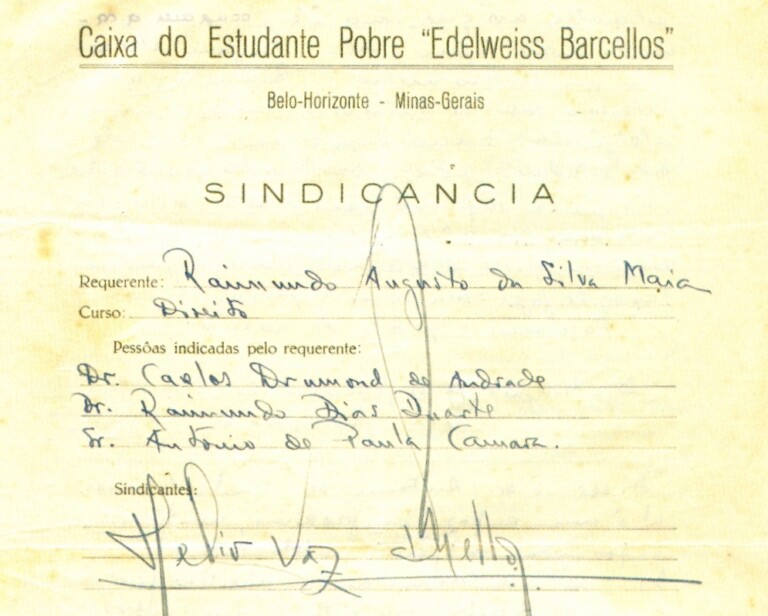 Caixa do Estudante Pobre "Edelweiss Barcellos"
Belo-Horizonte - Minas-Gerais
SINDICANCIA
Requerente: Raimundo Augusto da Silva Maia
Curso: Direito
Pessôas indicadas pelo requerente:
Dr. Carlos Drumond de Andrade
Dr. Raimundo Dias Duarte
Sr. Antonio de Paula Camara.
Sindicantes:
Helio Vaz Mello